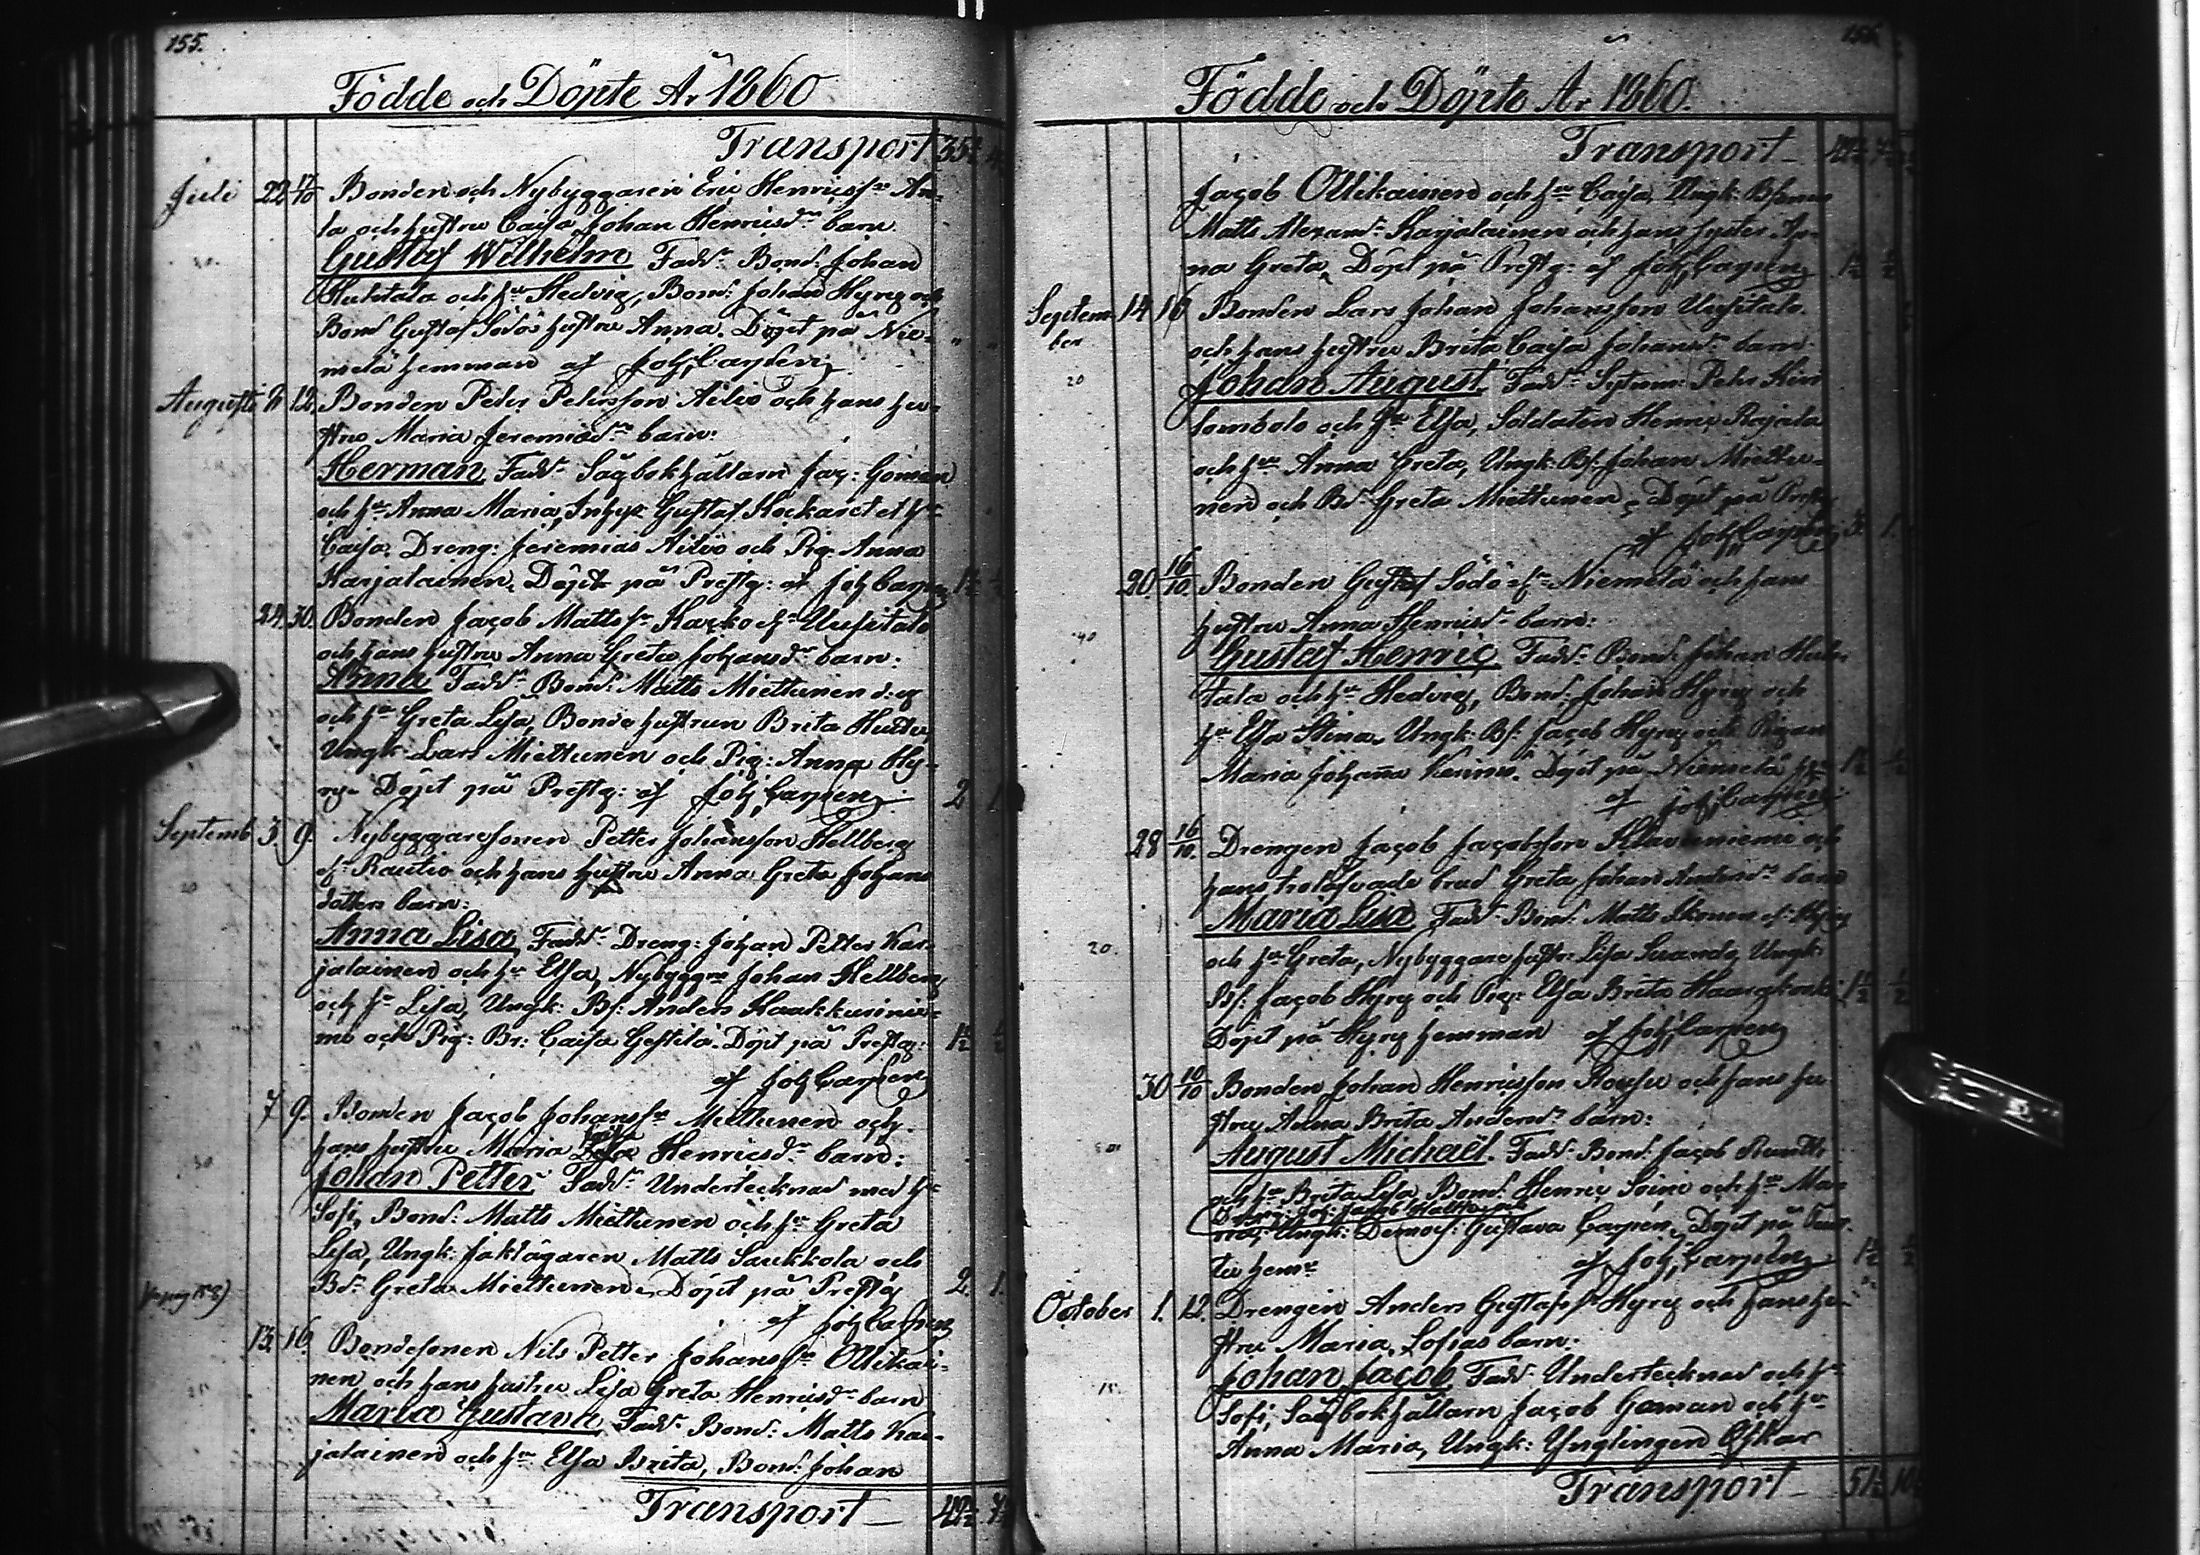 155.
Födde och Döpte År 1860
Transport 35½
Juli 22 17/10 Bonden och Nybyggaren Eric Henricss:n An-
la och hustru Caisa Johan Henricsd:r barn
Gustaf Wilhelm Fadd:r Bond: Johan
Huhtala och h:u Hedvig, Bond: Johan Hyry och
Bond Gustaf Sodös hustru Anna. Döpt på Nie-
melä hemman af Joh, Carpén,
Augusti 12. Bonden Peter Petersson Ailio och hans hu-
stru Maria Jeremiasd:r barn:
Herman Fadd:r Sågbokhållarn Jac: Göman
och h:u Anna Maria, Gustaf et h:u
Caisa, Dreng: Jeremias Ailio och Pig: Anna
Karjalainen, Döpt på Prestg: af Joh Carpén 1½ ½
24. 30. Bonden Jacob Matts s:n Kacko Uusitalo
och hans hustru Anna Greta Johansd:r barn:
Anna Fadd:r Bond: Matts Miettunen d: ä
och h:u Greta Lisa, Bonde hustrun Brita
Ungk: Lars Miettunen och Pig: Anna Hy-
ry. Döpt på Prestg: af Joh, Carpén 2 1
Septemb 3. 9. Nybyggaresonen Petter Johansson Hellberg
ef Rautio och hans hustru Anna Greta Johans
dotters barn:
Anna Lisa, Fadd:r Dreng: Johan Petter Kar-
jalainen och h:u Elsa, Nybygg:n Johan Hellberg
och h:u Lisa, Ungk: Bs: Anders Kaakkurinie-
mi och Pig: Br: Caisa Gestilä. Döpt på Prestg: 1½ ½
af Joh Carpén
7 9. Bonden Jacob Johanss:n Miettunen och
hans hustru Maria Henricsd:r barn:
Johan Petter Fadd:r Undertecknad med h:u
Sofi, Bond: Matts Miettunen och h:u Greta
Lisa, Ungk: Matts Saukkola och
Bd:r Greta Miettunen, Döpt på Prestg 2. 1.
af Joh Carpén
13. 16. Bondesonen Nils Petter Johanss:n Ollikai-
nen och hans hustru Lisa Greta Henricsd:r barn
Maria Gustava Fadd:r Bond: Matts Kar-
jalainen och h:u Elsa Brita, Bond: Johan
Transport — 42½ 7½
156.
Födde och Döpte År 1860.
Transport — 42½ 7½
Jacob Ollikainen och h:u Caisa, Ungk: Bs:
Matts Alexand:r Karjalainen och hans syster An-
na Greta, Döpt på Prestg: af Joh, Carpén 1½ ½
Septem-
ber 14 16 Bonden Lars Johan Johansson Uusitalo
och hans hustru Brita Caisa Johansd:r barn.
20 Johan August Fadd:r Sytnm: Pehr Kivi
lombolo och h:u Elsa, Soldaten Henric Rajala
och h:u Anna Greta, Ungk: Bs: Johan Miettu-
nen och Bd: Greta Miettunen, Döpt på Prestg
af Joh Carpén 3. 1.
20. 16/10 Bonden Gustaf Södö ef:r Niemelä och hans
40 hustru Anna Henricsd:r barn:
Gustaf Henric Fadd:r Bond: Johan Huh-
tala och h:u Hedvig, Bond: Johan Hyry och
h:u Elsa Stina, Ungk: Bs: Jacob Hyry och Pigan
Maria Johanna Keinu. Döpt på Niemelä h:n 1½ ½
af Joh, Carpén
28 16/10. Drengen Jacob Jacobsson Klaveniemi och
hans trolofvade brud Greta Johan Andersd:r barn
Maria Lisa Fadd:r Bond: Matts ef: Hyry
20. och h:u Greta, Nybyggare hustr: Lisa Suando, Ungk:
Bs: Jacob Hyry och Pig: Elsa Brita 1½ ½
Döpt på Hyry hemman af Joh, Carpén
30 10/10 Bonden Johan Henricsson och hans hu
stru Anna Brita Andersd:r barn:
August Michaël. Fadd:r Bond: Jacob
och h:u Brita Lisa, Bond: Henric Soini och h:u Ma-
ria, Ungk: Demois: Gustava Carpén, Döpt på
tu hem:n af Joh, Carpén 1½ ½
October 1. 12. Drengen Anders Gustafss:n Hyry och hans hu-
stru Maria Sofias barn:
15. Johan Jacob Fadd:r Undertecknad och h:u
Sofi, Sågbokhållarn Jacob Göman och h:u
Anna Maria, Ungk: Ynglingen Oskar
Transport — 51½ 10½